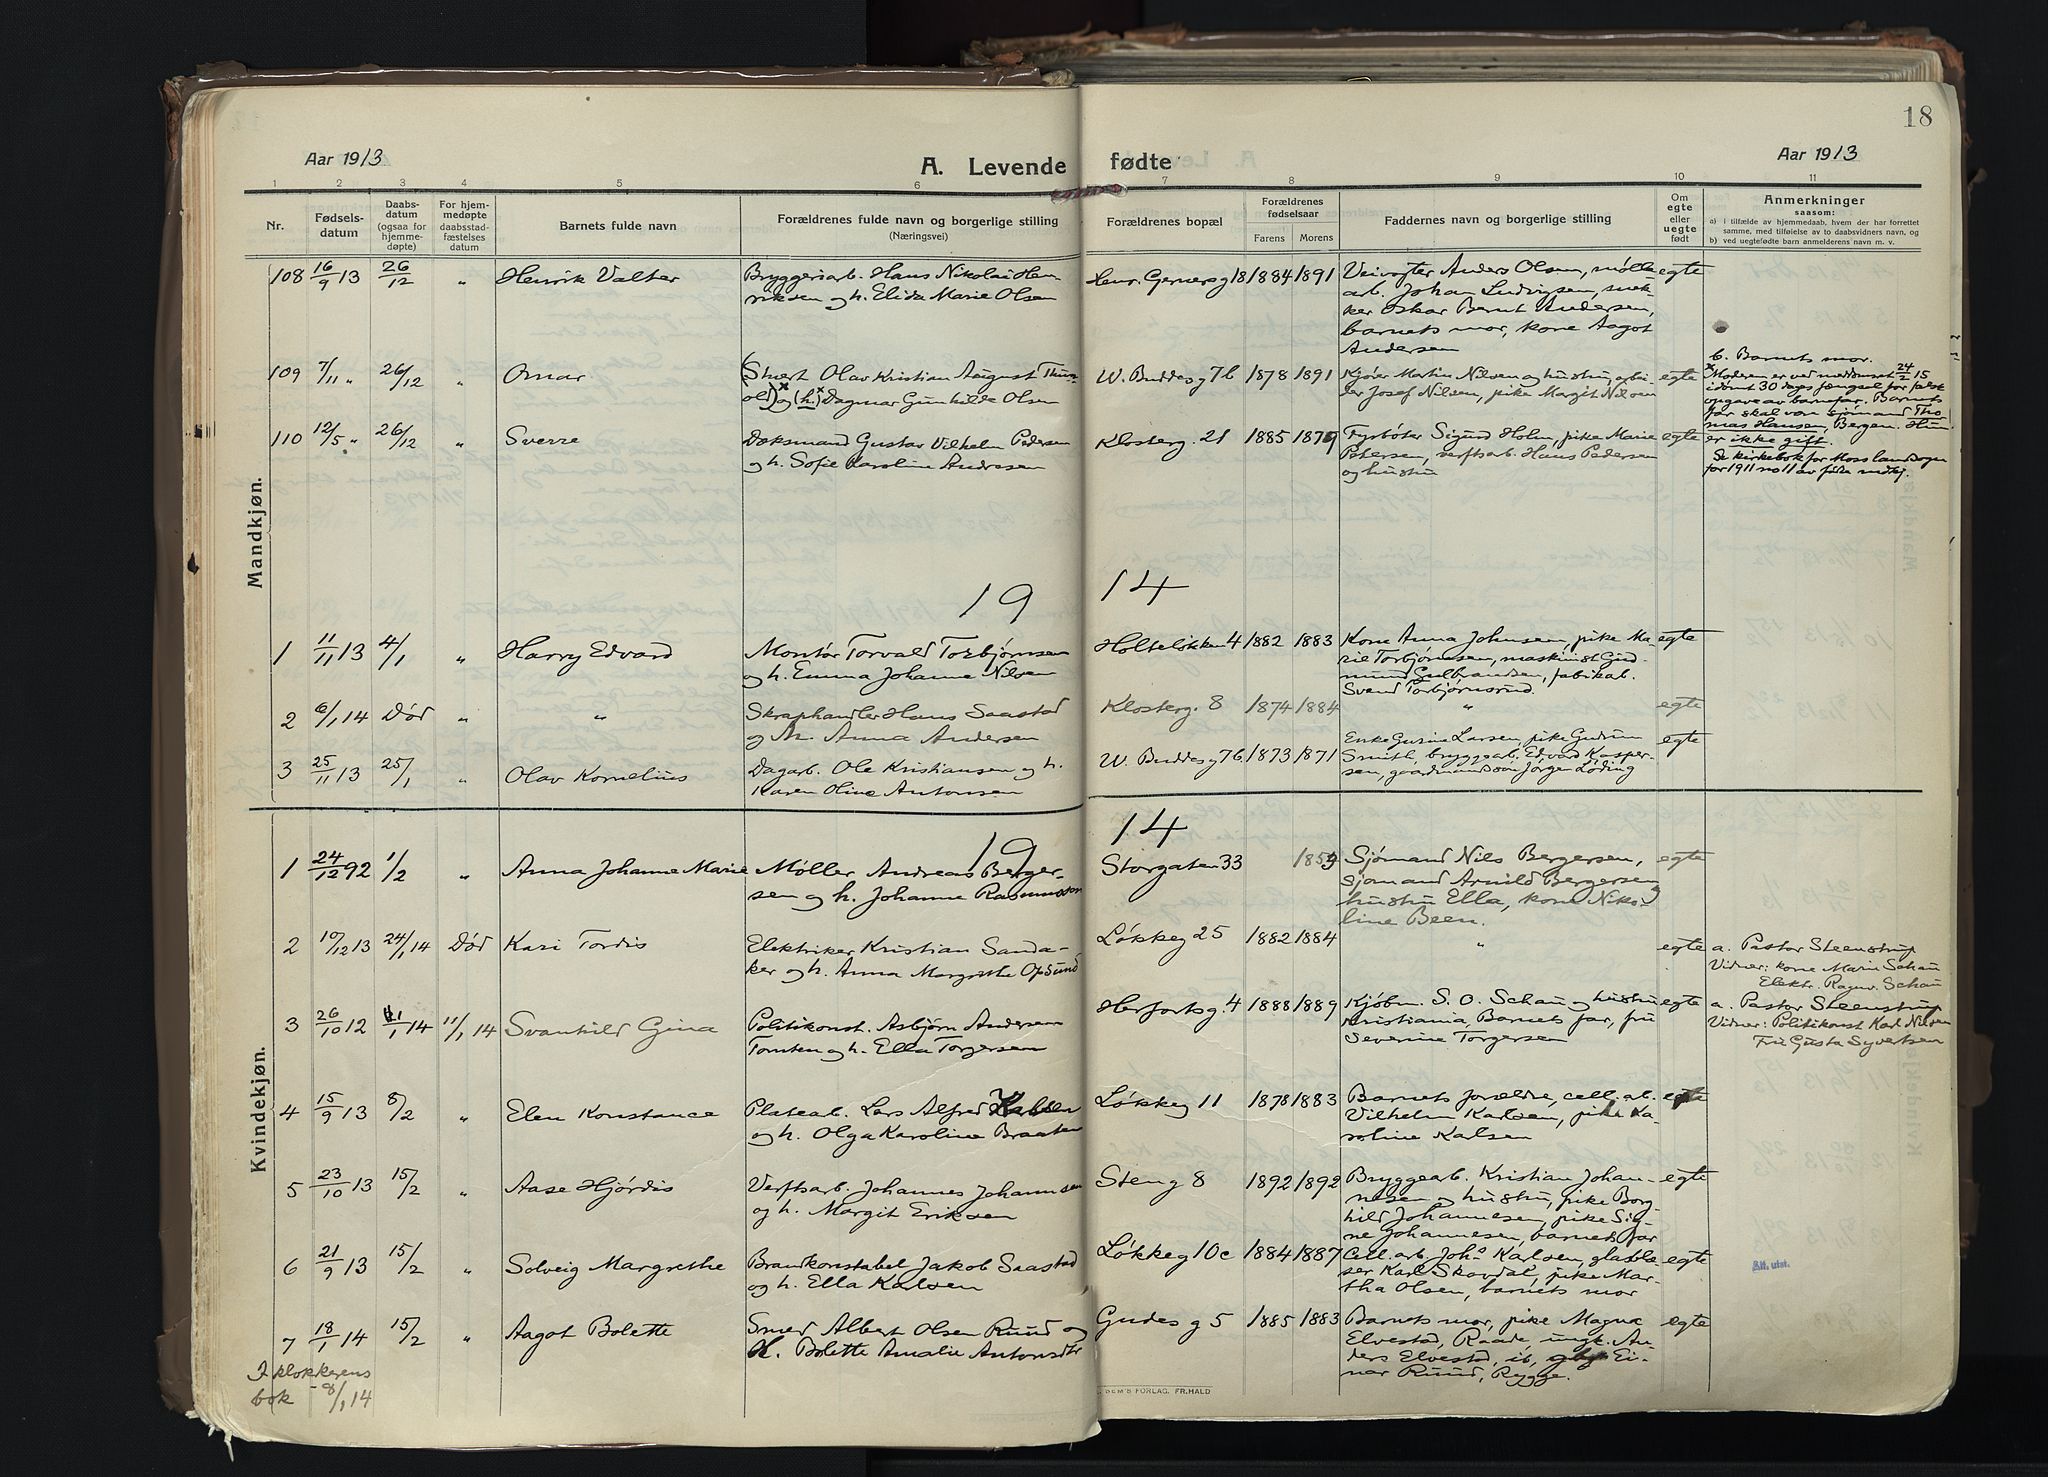 18
Aar 1913
A. Levende fødte
Aar 1913
1 2 3 4 5 6 7 8 9 10 11
Nr.
Fødsels-
datum
Daabs-
datum
(ogsaa for
hjemme-
døpte)
For hjem-
medøpte
daabsstad-
fæstelses
datum
Barnets fulde navn
Forældrenes fulde navn og borgerlige stilling
(Næringsvei)
Forældrenes bopæl
Forældrenes
fødselsaar
Farens Morens
Faddernes navn og borgerlige stilling
Om
egte
eller
uegte
født
Anmerkninger
saasom:
a) i tilfælde av hjemmedaab, hvem der har forrettet
samme, med tilføielse av to daabsvidners navn, og
b) ved uegtefødte barn anmelderens navn m. v.
Mandkjøn.
108 16/9 13 26/12 " Henrik Valter
Bryggeriarb. Hans Nikolai Hen-
riksen og h. Elida Marie Olsen
Henr. Gerners g 18 1884 1891
Veivogter Anders Olsen, mølle-
arb. Johan Ludvigsen, snek-
ker Oskar Bernt Andersen,
barnets mor, kone Aagot
Andersen
egte
109 7/11 " 26/12 " Omar
(Stuert Olav Kristian August Thur-
old)x og (h.)x Dagmar Gunhilde Olsen
W. Buddes g 7b 1878 1891
Kjører Martin Nilsen og hustru, arbei-
der Josef Nilsen, pike Margit Nilsen
egte
b. Barnets mor.
x Moderen er ved meddomsret 24/2 15
idømt 30 dags fængsel for falsk
opgave av barnefar. Barnets
far skal være sjømand Tho
mas Hansen, Bergen. Hun
er ikke gift.
Se kirkebok for Moss landsogn
for 1911 no 11 av føde
110 12/5 " 26/12 " Sverre
Dæksmand Gustav Vilhelm Pedersen
og h. Sofie Karoline Andresen
Klosterg. 21 1885 1879
Fyrbøter Sigurd Holm, pike Marie
Petersen, verftsarb. Hans Pedersen
og hustru
egte
19 14
1 11/11 13 4/1 " Harry Edvard
Montør Torvald Torbjørnsen
og h. Emma Johanne Nilsen
Holteløkken 4 1882 1883
Kone Anna Johnsen, pike Ma-
rie Torbjørnsen, maskinist Gud-
mund Gulbrandsen, fabikab.
Svend Torbjørnsrud.
egte
2 6/1 14 Død " "
Skraphandler Hans Saastad
og h. Anna Andersen
Klosterg. 8 1874 1884 " egte
3 25/11 13 25/1 " Olav Kornelius
Dagarb. Ole Kristiansen og h.
Karen Oline Antonsen
W. Buddes g 7b 1873 1871
Enke Gurine Larsen, pike Gudrun
Smith, bryggearb. Edvard Kasper-
sen, gaardmandssøn Jørgen Løding
egte
Kvindekjøn.
19 14
1 24/12 92 1/2 " Anna Johanne Marie
Møller Andreas Berger-
sen og h. Johanne Rasmussen
Storgaten 33 1859
Sjømand Nils Bergersen,
sjømand Arnild Bergersen og
hustru Ella, kone Niko-
line Been.
egte
2 10/12 13 24/1 14 Død Kari Tordis
Elektriker Kristian Sanda-
ker og h. Anna Margrethe Opsund
Løkkeg 25 1882 1884 " egte
a. Pastor Steenstrup
Vidner: kone Marie Schau
Elektr. Ragnv. Schau
3 26/10 12 11/1 14 11/1 14 Svanhild Gina
Politikonst. Asbjørn Andersen
Tomten og h. Ella Torgersen
Herforts g. 4 1888 1889
Kjøbm. S. O. Schau og hustru
Kristiania, Barnets far, fru
Severine Torgersen
egte
a. Pastor Steenstrup
Vidner: Politikonst Karl Nilsen
Fru Gusta Syvertsen
4 15/9 13 8/2 " Elen Konstance
Platearb. Lars Alfred Karlsen
og h. Olga Karoline Braaten
Løkkeg 11 1878 1883
Barnets forældre, cell. ab.
Vilhelm Karlsen, pike Ka-
roline Karlsen
egte
5 23/10 13 15/2 " Aase Hjørdis
Verftsarb. Johannes Johannsen
og h. Margit Eriksen
Steng 8 1892 1892
Bryggearb. Kristian Johan-
nesen og hustru, pike Borg-
hild Johannesen, pike Sig-
ne Johannesen, barnets far
egte
6 21/9 13 15/2 " Solveig Margrethe
Brandkonstabel Jakob Saastad
og h. Ella Karlsen
Løkkeg 10c 1884 1887
Cell. arb. Johs Karlsen, glasblæ-
ser Karl Skovdal, pike Mar-
tha Olsen, barnets mor
egte
Att. utst.
7 18/1 14 15/2 " Aagot Bolette
Smed Albert Olsen Ruud og
h. Bolette Amalie Antonsdtr
Gudes g 5 1885 1883
Barnets mor, pike Magna
Elvestad, Raade, ungk. An-
ders Elvestad, ib, Ei-
nar Ruud, Rygge.
egte
I klokkerens
bok - 8/1 14
SEM'S FORLAG, FR.HALD